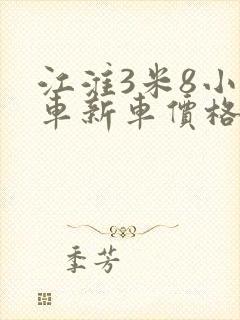 江淮3米8小
車新車價格
季芳